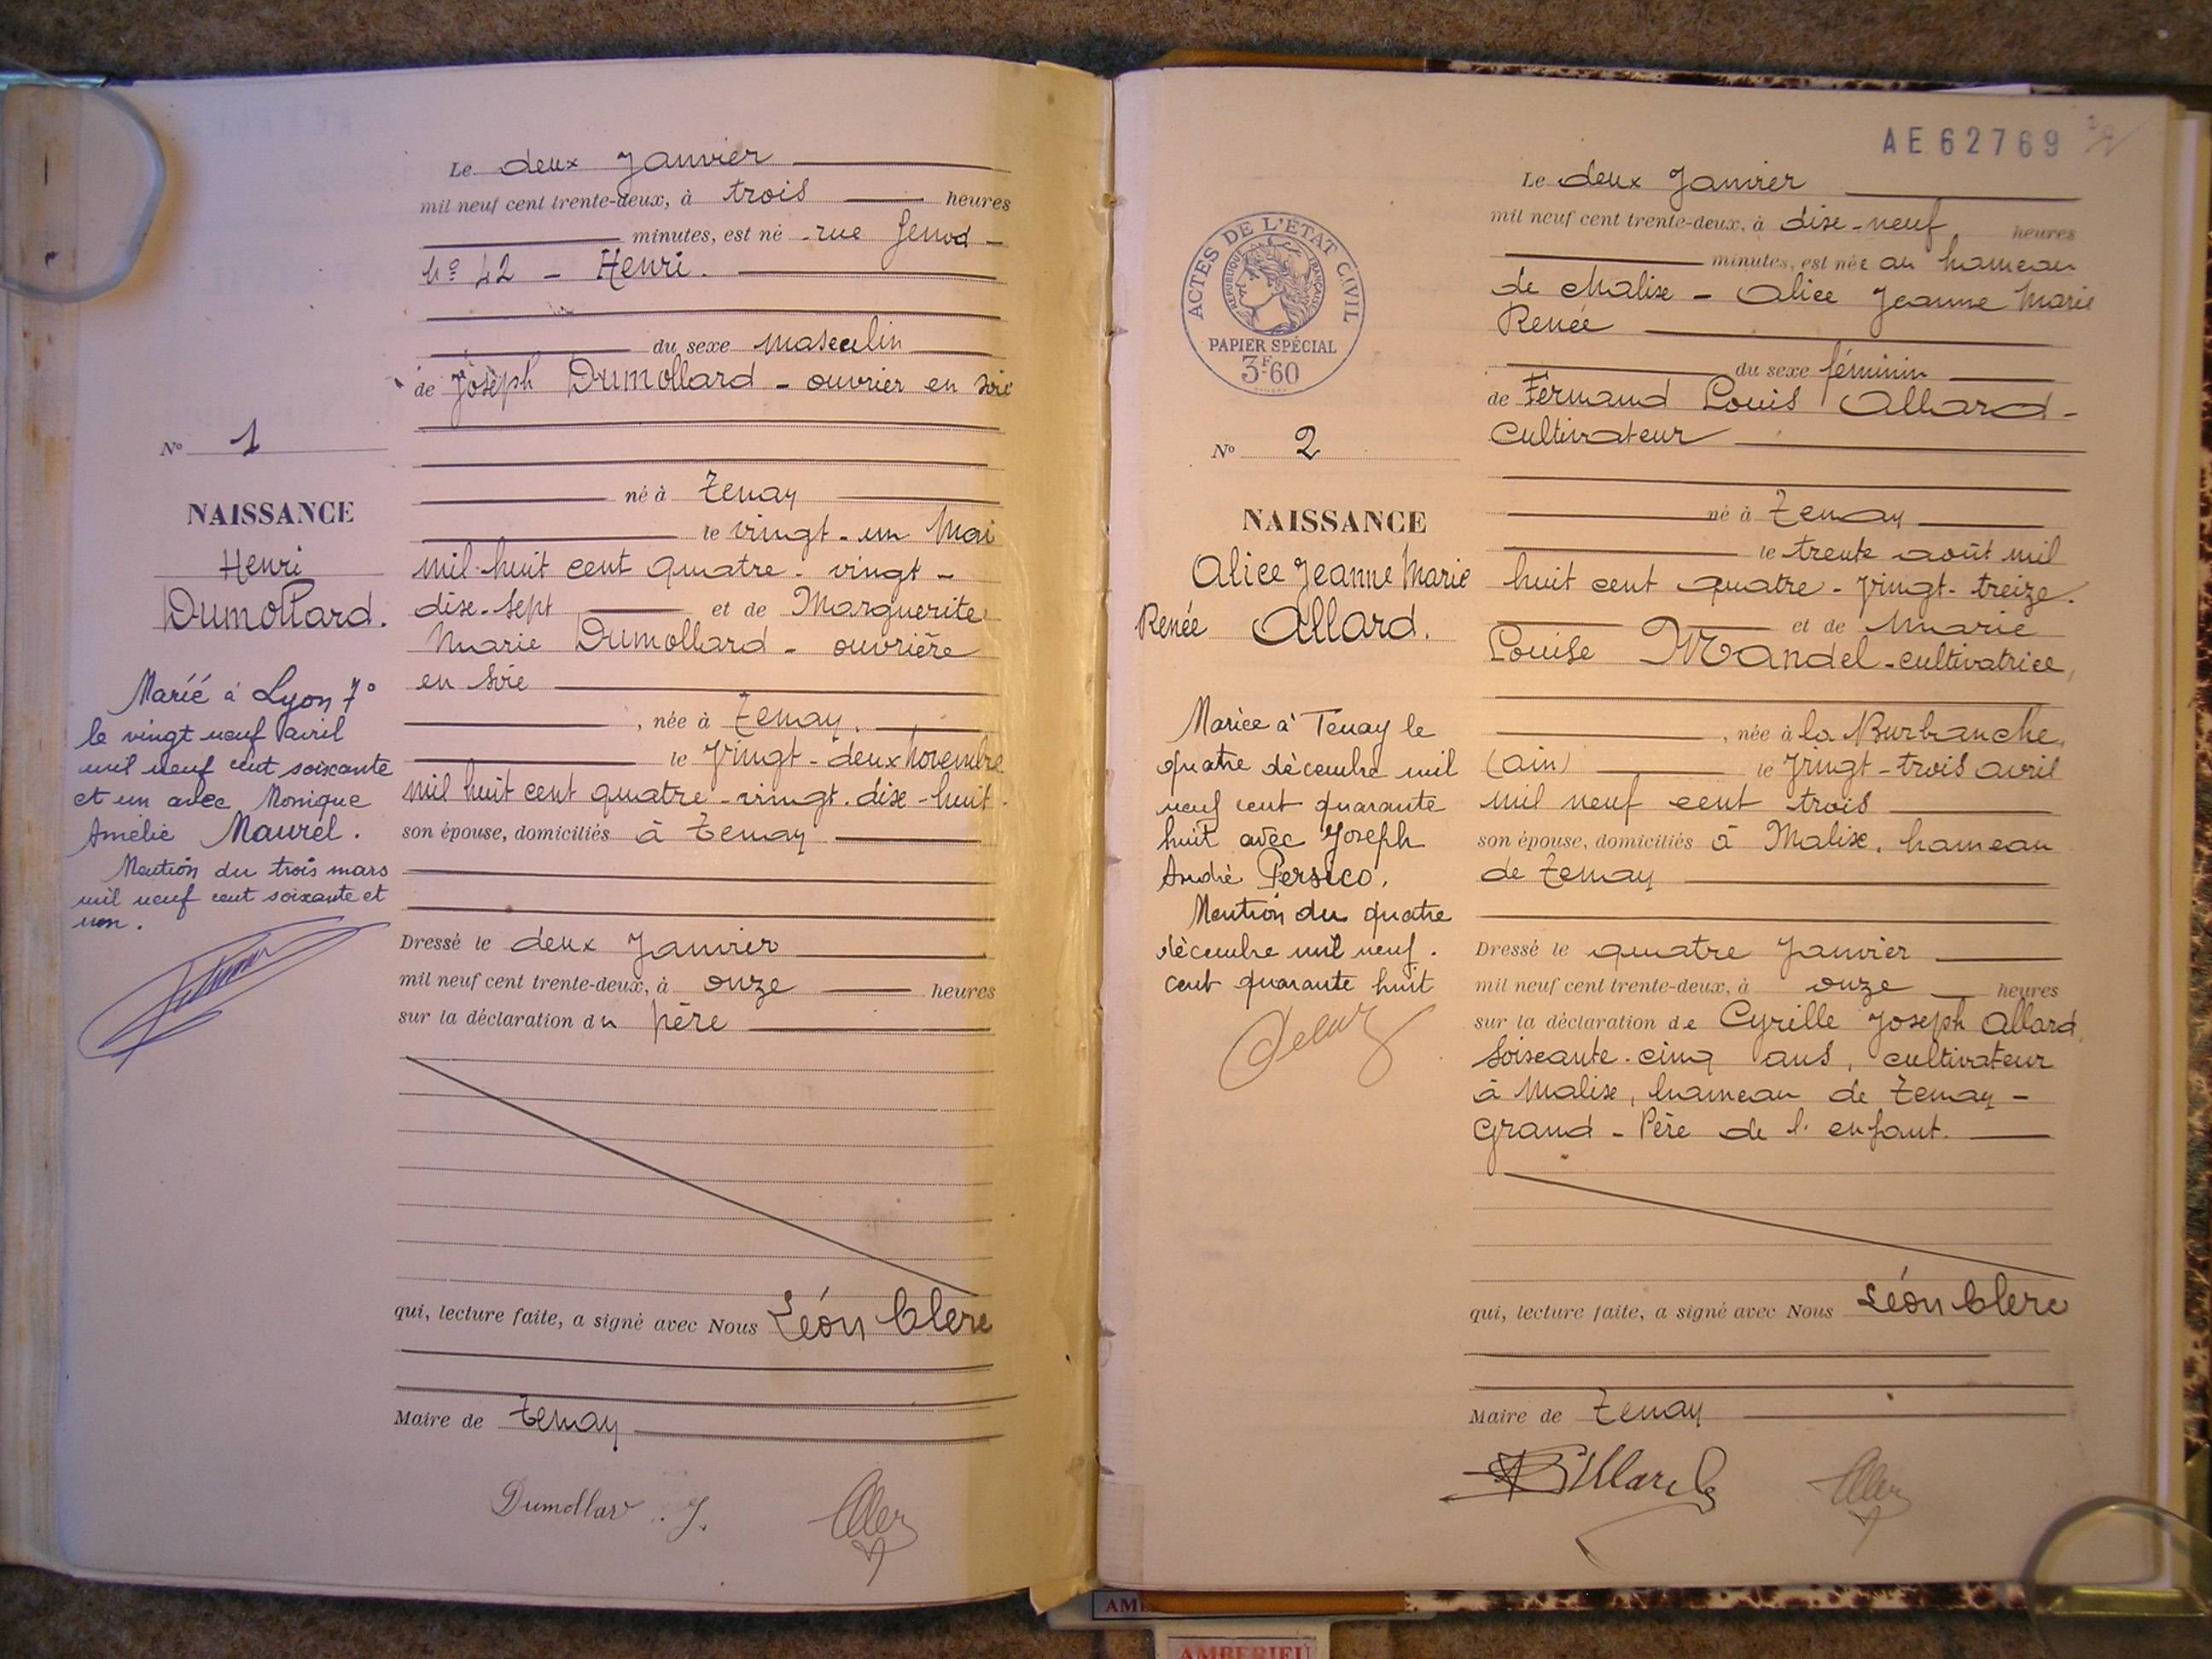 Le deux Janvier
mil neuf cent trente-deux, à trois heures
minutes, est né rue Genod
No 42 - Henri.
du sexe masculin
de Joseph Dumollard - ouvrier en soie
né à Tenay
le vingt-un Mai
mil-huit cent quatre-vingt-
dixe-sept et de Marguerite
Marie Dumollard - ouvrière
en soie
, née à Tenay.
le Vingt-deux Novembre
mil huit cent quatre-vingt-dixe-huit.
son épouse, domiciliés à Tenay
Dressé le deux Janvier
mil neuf cent trente-deux, à onze heures
sur la déclaration du Père
qui, lecture faite, a signé avec Nous Léon Clerc
Maire de Tenay
Dumollard J.
No 1
NAISSANCE
Henri
Dumollard.
Marié à Lyon 7e
le vingt neuf avril
mil neuf cent soixante
et un avec Monique
Amélie Maurel.
Mention du trois mars
mil neuf cent soixante et
un.
AE 62769
ACTES DE L'ETAT CIVIL
REPUBLIQUE FRANÇAISE
PAPIER SPÉCIAL
3F60
No 2
NAISSANCE
Alice Jeanne Marie
Renée Allard.
Mariée à Tenay le
quatre décembre mil
neuf cent quarante
huit avec Joseph
André Persico.
Mention du quatre
décembre mil neuf.
cent quarante huit
Le deux Janvier
mil neuf cent trente-deux, à dixe-neuf heures
minutes, est née au hameau
de Malixe - Alice Jeanne Marie
Renée
du sexe féminin
de Fernand Louis Allard -
Cultivateur
né à Tenay
le trente août mil
huit cent quatre-vingt-treize.
et de Marie
Louise Mandel - cultivatrice,
, née à la Burbanche,
(ain) le Vingt-trois avril
mil neuf cent trois
son épouse, domiciliés à Malixe, hameau
de Tenay
Dressé le quatre Janvier
mil neuf cent trente-deux, à onze heures
sur la déclaration de Cyrille Joseph Allard,
soixante-cinq ans, cultivateur
à Malixe, hameau de Tenay -
Grand-Père de l'enfant.
qui, lecture faite, a signé avec Nous Léon Clerc
Maire de Tenay
AMBERIEU